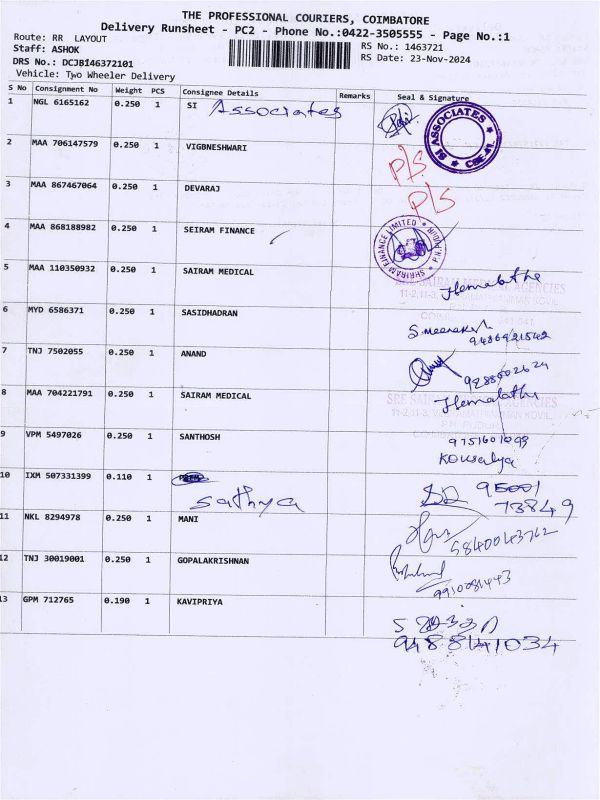 THE PROFESSIONAL COURIERS, COIMBATORE
Delivery Runsheet - PC2 - Phone No.:0422-3505555 - Page No.:1
Route: RR LAYOUT
RS No.: 1463721
Staff: ASHOK
RS Date: 23-Nov-2024
DRS No.: DCJB146372101
Vehicle: Two Wheeler Delivery
S No Consignment No Weight PCS Consignee Details Remarks Seal & Signature
1 NGL 6165162 0.250 1 SI Associates
SI ASSOCIATES CBE-41.
2 MAA 706147579 0.250 1 VIGBNESHWARI P/S
3 MAA 867467064 0.250 1 DEVARAJ P/S
4 MAA 868188982 0.250 1 SEIRAM FINANCE
SHRIRAM FINANCE LIMITED
5 MAA 110350932 0.250 1 SAIRAM MEDICAL Hemalatha
SRE SAIRAM MEDICAL AGENCIES
6 MYD 6586371 0.250 1 SASIDHADRAN
7 TNJ 7502055 0.250 1 ANAND
8 MAA 704221791 0.250 1 SAIRAM MEDICAL Hemalatha
SRE SAIRAM MEDICAL AGENCIES
9 VPM 5497026 0.250 1 SANTHOSH 9751601093
Kousalya
10 IXM 507331399 0.110 1 Sathya 95001
73849
11 NKL 8294978 0.250 1 MANI
12 TNJ 30019001 0.250 1 GOPALAKRISHNAN
9910081443
13 GPM 712765 0.190 1 KAVIPRIYA
9488141034